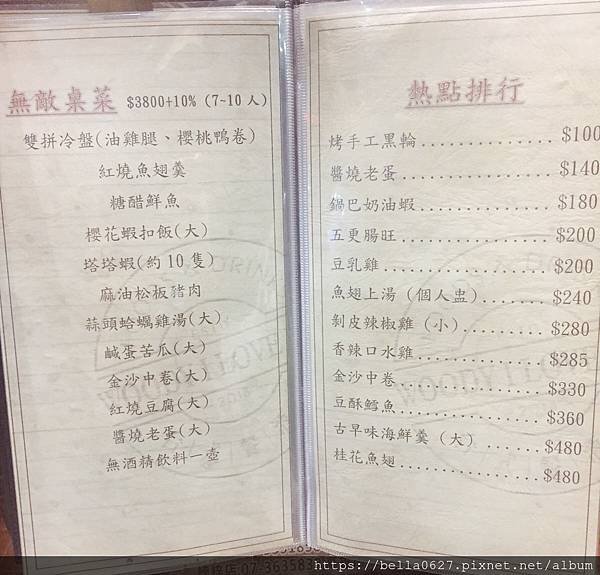 無敵桌菜 $3800+10% (7~10 人)
雙拼冷盤(油雞腿、櫻桃鴨卷)
紅燒魚翅羹
糖醋鮮魚
櫻花蝦扣飯(大)
塔塔蝦(約10隻)
麻油松板豬肉
蒜頭蛤蠣雞湯(大)
鹹蛋苦瓜(大)
金沙中卷(大)
紅燒豆腐(大)
醬燒老蛋(大)
無酒精飲料一壺
熱點排行
烤手工黑輪...............$100
醬燒老蛋.................$140
鍋巴奶油蝦...............$180
五更腸旺.................$200
豆乳雞...................$200
魚翅上湯（個人盅）.......$240
剝皮辣椒雞（小）.........$280
香辣口水雞...............$285
金沙中卷.................$330
豆酥鱈魚.................$360
古早味海鮮羹（大）.......$480
桂花魚翅.................$480
https://bella0627.pixnet.net/album